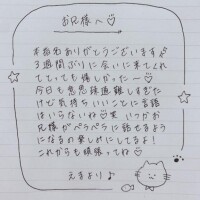 お兄様へ♡
本指名ありがとうございます♪
3週間ぶりに会いに来てくれ
てとっても嬉しかったー♡
今日も意思疎通難しすぎた
けど気持ちいいことに言語
はいらないね♡笑 いつかお
兄様がペラペラに話せるよう
になるの楽しみにしてるよ!
これからも頑張ってね♡
より♪